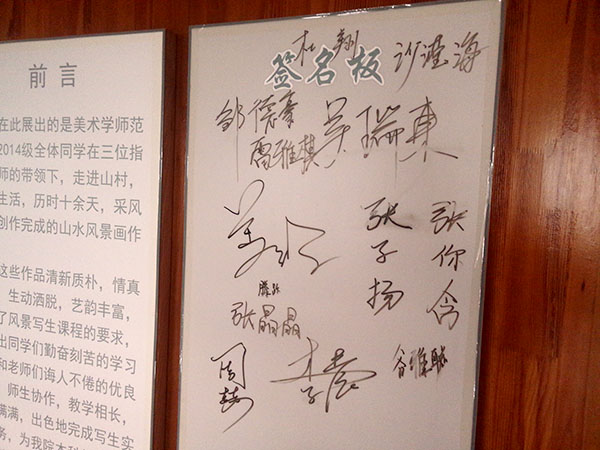 前言
在此展出的是美术学师范
2014级全体同学在三位指
师的带领下，走进山村，
生活，历时十余天，采风
创作完成的山水风景画作
这些作品清新质朴，情真
生动洒脱，艺韵丰富，
了风景写生课程的要求，
出同学们勤奋刻苦的学习
和老师们诲人不倦的优良
师生协作，教学相长，
满满，出色地完成写生实
务，为我院本科
签名板
杜翔
邹德豪
雷雅棋
吴瑞東
张子扬
张你含
张晶晶